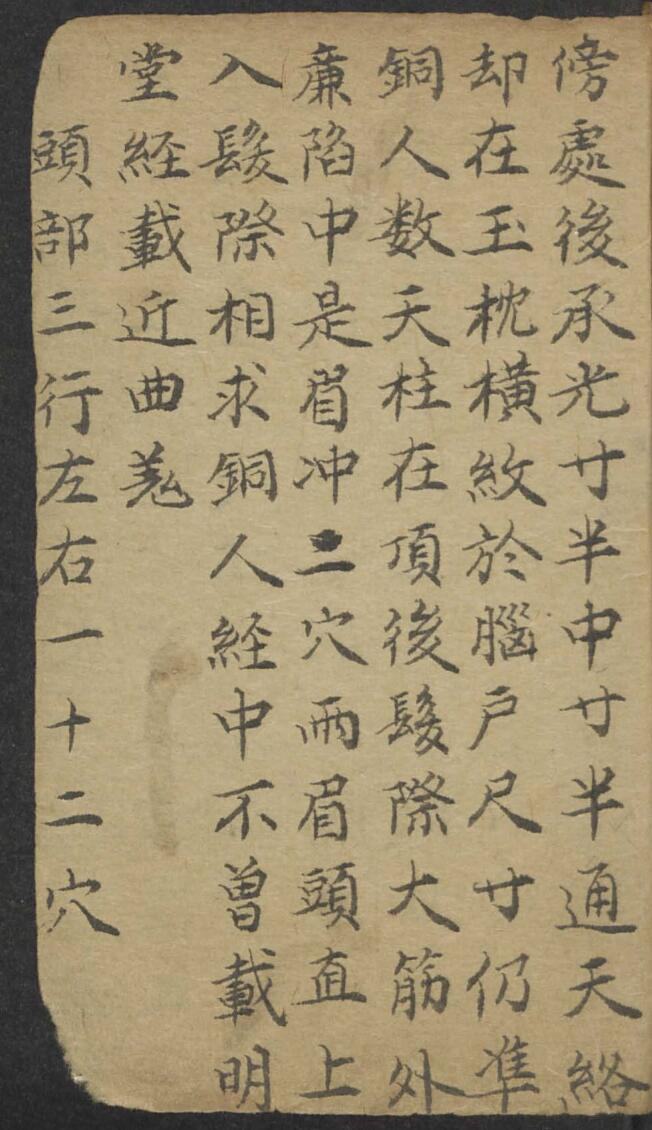 傍處後承光寸半中寸半通天絡
却在玉枕橫紋於腦戶尺寸仍準
銅人数天柱在項後髮際大筋外
亷陷中是眉冲二穴兩眉頭直上
入髮際相求銅人経中不曽載明
堂経載近曲䰟
頭部三行左右一十二穴